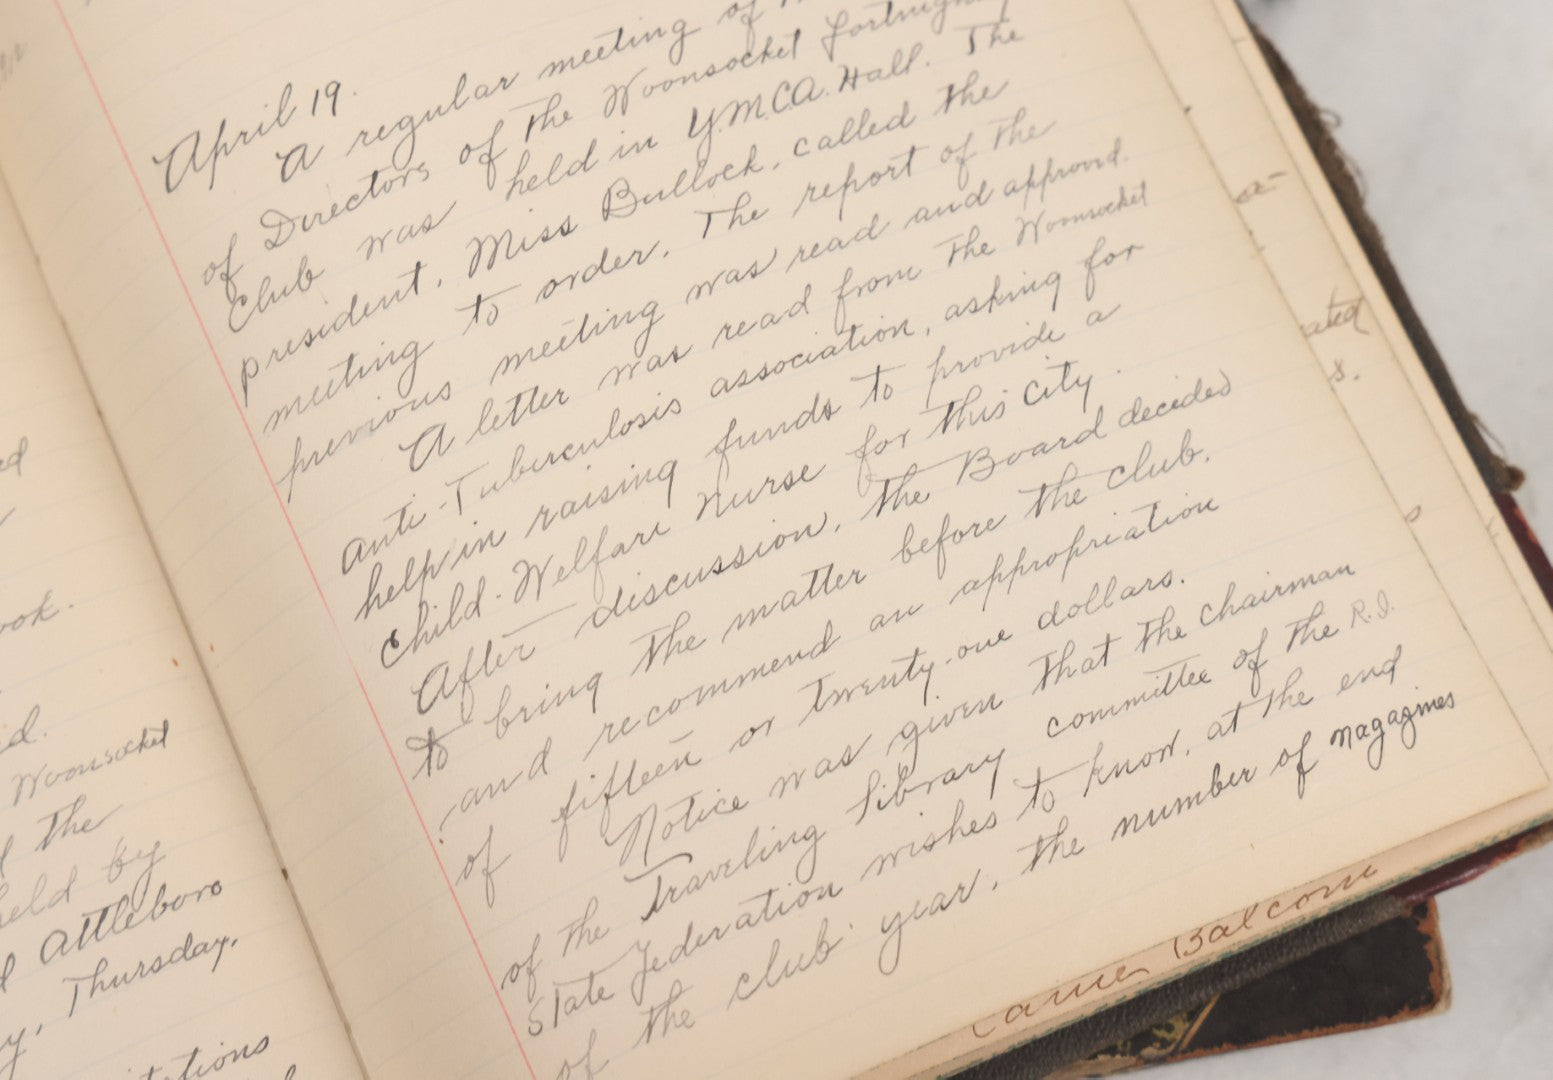 ed
ook.
d.
Woonsocket
the
held by
Attleboro
Thursday,
April 19.
A regular meeting of
of Directors of the Woonsocket Fortnightly
Club was held in Y.M.C.A. Hall. The
president, Miss Bullock, called the
meeting to order. The report of the
previous meeting was read and approved.
A letter was read from the Woonsocket
Anti-Tuberculosis association, asking for
help in raising funds to provide a
Child-Welfare nurse for this city.
After discussion, the Board decided
to bring the matter before the club.
and recommend an appropriation
of fifteen or twenty-one dollars.
Notice was given that the chairman
of the Traveling library committee of the R.I.
State Federation wishes to know, at the end
of the club year, the number of magazines
ated
s.
Balcom